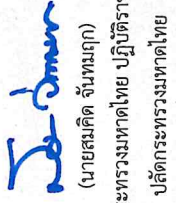 (นายสมคิด จันทมฤก)
ะทรวงมหาดไทย ปฏิบัติรา
ปลัดกระทรวงมหาดไทย